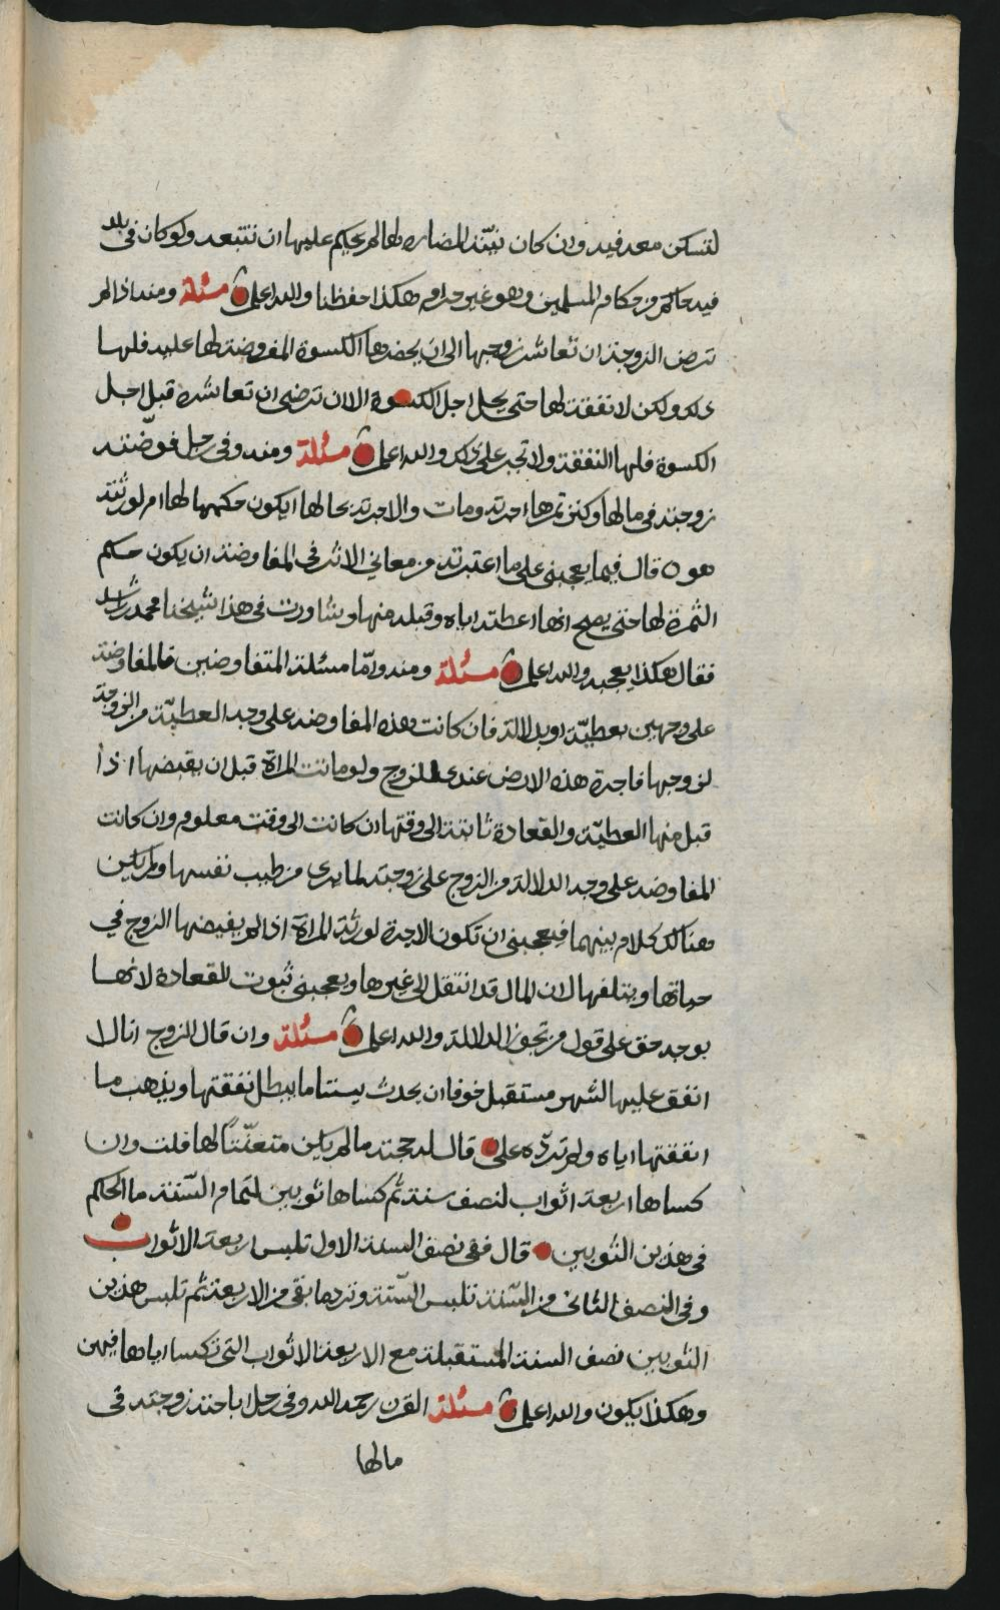 لتسكن معه فيه وان كان نيته المضاره لها لم يحكم عليها ان تتبعه ولو كان في بلد
فيه حاكم من حكام المسلمين وهو غير حرامه هكذا حفظنا والله اعلم مسئلة ومنه اذا لم
ترض الزوجة ان تعاشر زوجها الى ان يحضرها الكسوة المفروضة لها عليه فلها
ذلك ولكن لا نفقة لها حتى يحل اجل الكسوة الا ان ترضى ان تعاشره قبل اجل
الكسوة فلها النفقة ولا تجبر على ذلك والله اعلم مسئلة ومنه وفي رجل فوّضته
زوجته في مالها وكنز تمرها اجرته ومات والاجرة بحالها ايكون حكمها لها ام لورثته
هو ٥ قال فيما يعجبني على ما اعتبرته من معاني الاثر في المفاوضة ان يكون حكم
الثمرة لها حتى يصح انها اعطته اياه وقبله منها وشاورت في هذا شيخنا محمد بن راشد
فقال هكذا يعجبه والله اعلم مسئلة ومنه وامّا مسئلة المتفاوضين فالمفاوضة
على وجهين بعطيّة او بدلالة فان كانت هذه المفاوضه على وجه العطيّة من الزوجة
لزوجها فاجرة هذه الارض عندي للزوج ولو ماتت المراة قبل ان يقبضها اذا
قبل منها العطيّة والقعادة ثابتة الى وقتها ان كانت الى وقت معلوم وان كانت
المفاوضه على وجه الدلالة من الزوج على زوجته لما يرى من طيب نفسها ولم يكن
هنالك كلام بينهما فيعجبني ان تكون الاجرة لورثة المراة اذا لم يقبضها الزوج في
حياتها ويتلفها لان المال قد انتقل الى غيرها ويعجبني ثبوت القعادة لانها
بوجه حق على قول من يجوز الدلالة والله اعلم مسئلة وان قال الزوج انا لا
انفق عليها لشهر مستقبل خوفا ان يحدث بيننا ما يبطل نفقتها ويذهب ما
انفقتها اياه ولم تردّه علي قال له حجته ما لم يكن متعنّتًا لها قلت وان
كساها اربعة اثواب لنصف سنة ثم كساها ثوبين لتمام السّنة ما الحكم
في هذين الثوبين قال ففي نصف السنة الاول تلبس اربعة الاثواب
وفي النصف الثاني من السّنة تلبس السّتة وترد ما بقي من الاربعة ثم تلبس هذين
الثوبين نصف السنة المستقبلة مع الاربعة الاثواب التي تكسا اياها فيهن
وهكذا يكون والله اعلم مسئلة القرن رحمه الله وفي رجل اباحته زوجته في
مالها